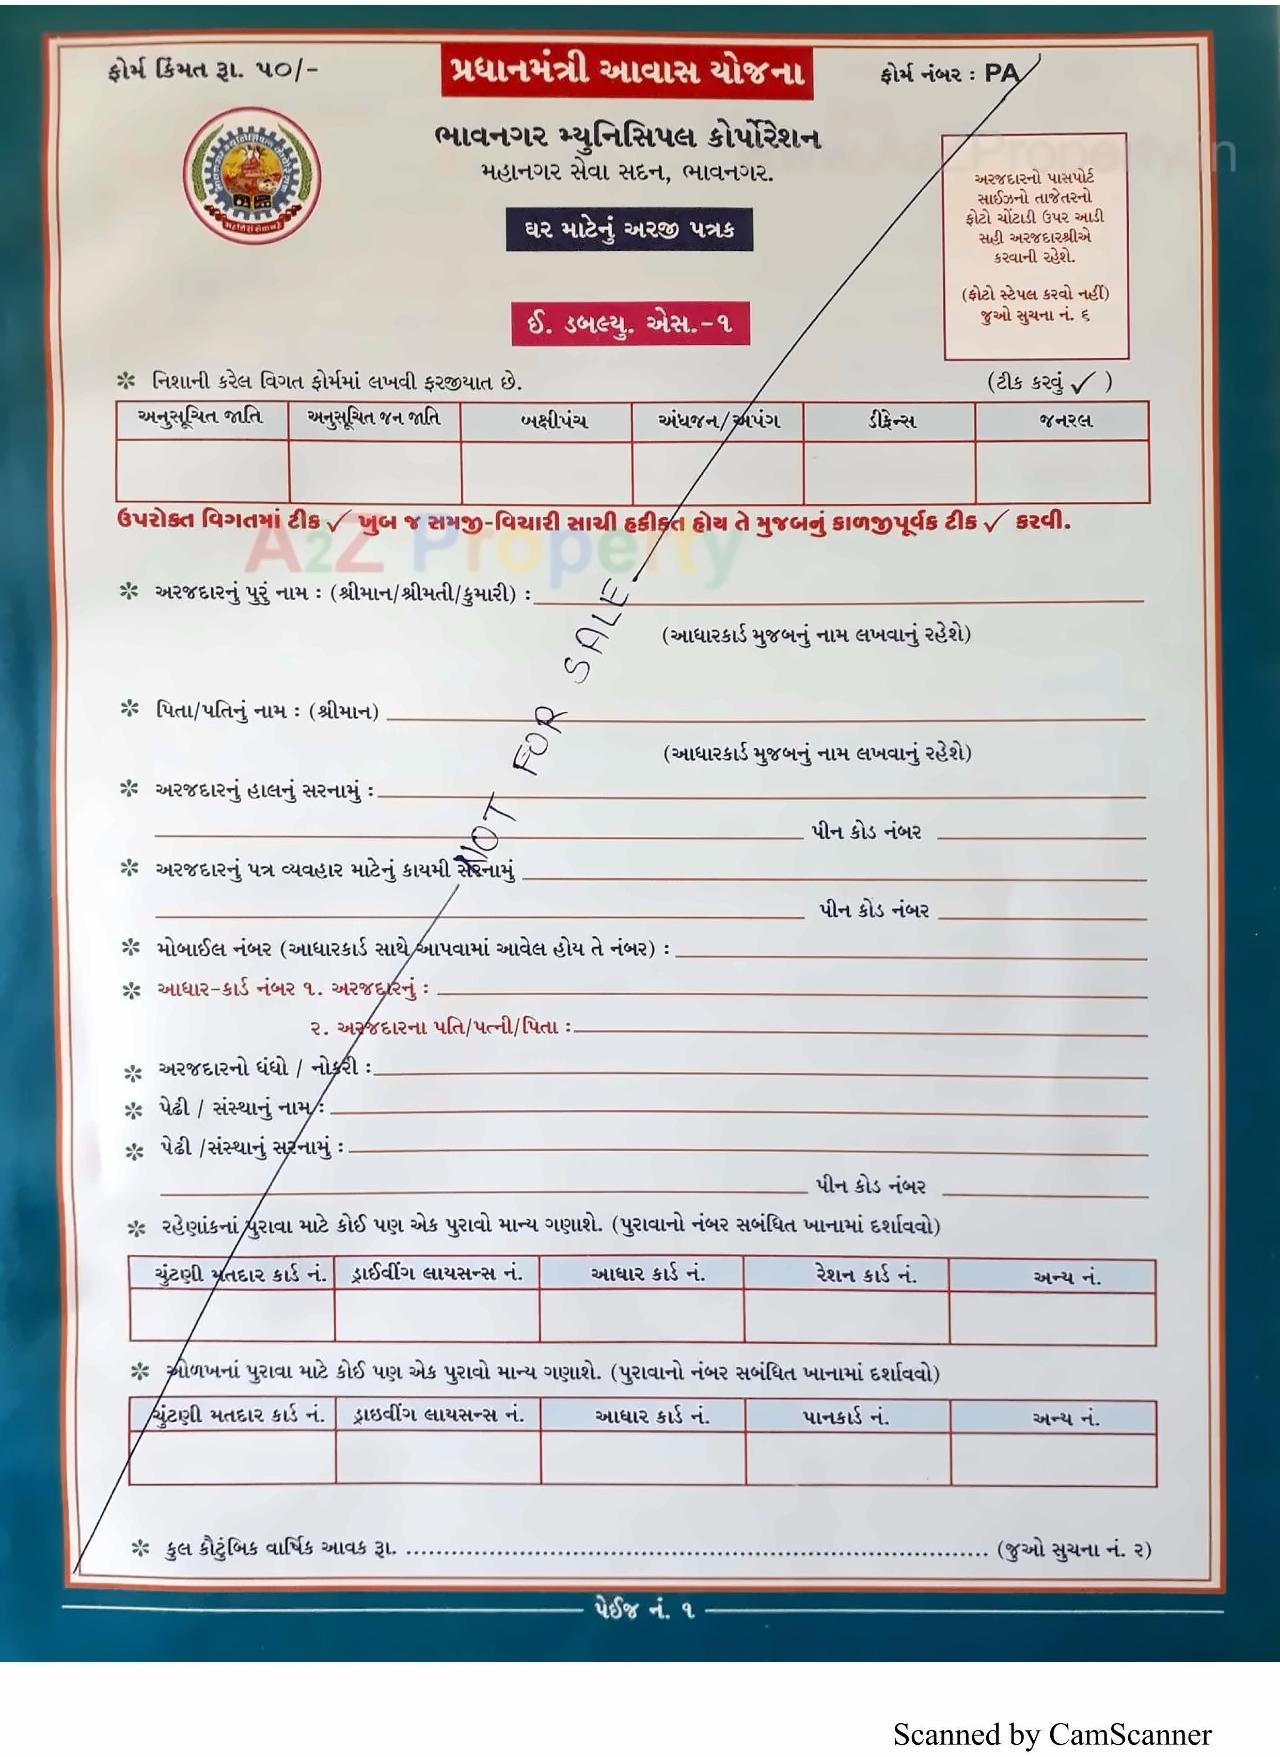 ફોર્મ કિંમત રૂા. ૫૦/-
પ્રધાનમંત્રી આવાસ યોજના
ફોર્મ નંબર : PA
ભાવનગર મ્યુનિસિપલ કોર્પોરેશન
મહાનગર સેવા સદન, ભાવનગર.
ઘર માટેનું અરજી પત્રક
ઈ. ડબલ્યુ. એસ.-૧
અરજદારનો પાસપોર્ટ
સાઈઝનો તાજેતરનો
ફોટો ચોંટાડી ઉપર આડી
સહી અરજદારશ્રીએ
કરવાની રહેશે.
(ફોટો સ્ટેપલ કરવો નહીં)
જુઓ સુચના નં. ૬
✼ નિશાની કરેલ વિગત ફોર્મમાં લખવી ફરજીયાત છે. (ટીક કરવું ✓ )
અનુસૂચિત જાતિ અનુસૂચિત જન જાતિ બક્ષીપંચ અંધજન/અપંગ ડીફેન્સ જનરલ
ઉપરોક્ત વિગતમાં ટીક ✓ ખુબ જ સમજી-વિચારી સાચી હકીકત હોય તે મુજબનું કાળજીપૂર્વક ટીક ✓ કરવી.
A2Z Property
✼ અરજદારનું પુરું નામ : (શ્રીમાન/શ્રીમતી/કુમારી) :
(આધારકાર્ડ મુજબનું નામ લખવાનું રહેશે)
✼ પિતા/પતિનું નામ : (શ્રીમાન)
(આધારકાર્ડ મુજબનું નામ લખવાનું રહેશે)
✼ અરજદારનું હાલનું સરનામું :
પીન કોડ નંબર
✼ અરજદારનું પત્ર વ્યવહાર માટેનું કાયમી સરનામું
પીન કોડ નંબર
NOT FOR SALE
✼ મોબાઈલ નંબર (આધારકાર્ડ સાથે આપવામાં આવેલ હોય તે નંબર) :
✼ આધાર-કાર્ડ નંબર ૧. અરજદારનું :
૨. અરજદારના પતિ/પત્ની/પિતા :
✼ અરજદારનો ધંધો / નોકરી :
✼ પેઢી / સંસ્થાનું નામ :
✼ પેઢી /સંસ્થાનું સરનામું :
પીન કોડ નંબર
✼ રહેણાંકનાં પુરાવા માટે કોઈ પણ એક પુરાવો માન્ય ગણાશે. (પુરાવાનો નંબર સબંધિત ખાનામાં દર્શાવવો)
ચુંટણી મતદાર કાર્ડ નં. ડ્રાઈવીંગ લાયસન્સ નં. આધાર કાર્ડ નં. રેશન કાર્ડ નં. અન્ય નં.
✼ ઓળખનાં પુરાવા માટે કોઈ પણ એક પુરાવો માન્ય ગણાશે. (પુરાવાનો નંબર સબંધિત ખાનામાં દર્શાવવો)
ચુંટણી મતદાર કાર્ડ નં. ડ્રાઇવીંગ લાયસન્સ નં. આધાર કાર્ડ નં. પાનકાર્ડ નં. અન્ય નં.
✼ કુલ કૌટુંબિક વાર્ષિક આવક રૂા. ........................ (જુઓ સુચના નં. ૨)
પેઈજ નં. ૧
Scanned by CamScanner